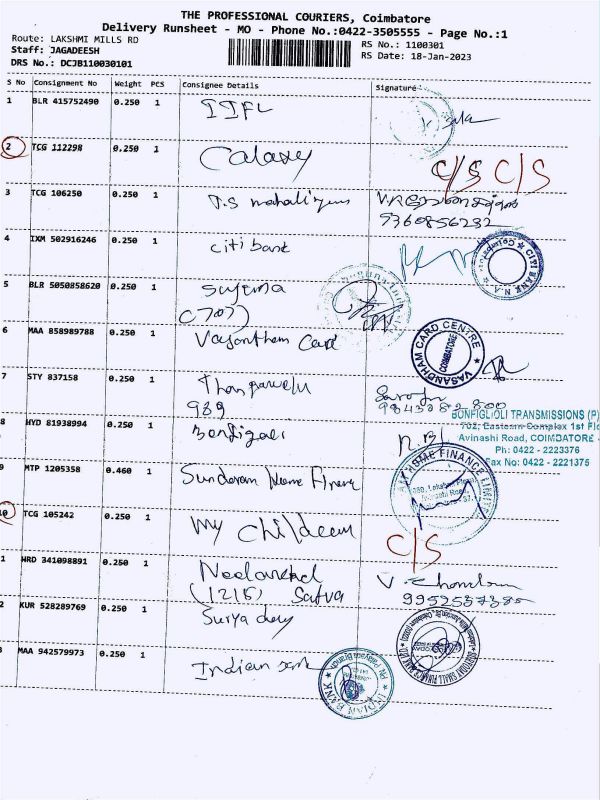 THE PROFESSIONAL COURIERS, Coimbatore
Delivery Runsheet - MO - Phone No.:0422-3505555 - Page No.:1
Route: LAKSHMI MILLS RD
RS No.: 1100301
Staff: JAGADEESH
RS Date: 18-Jan-2023
DRS No.: DCJB110030101
S No Consignment No Weight PCS Consignee Details Signature
1 BLR 415752490 0.250 1 IIFL
2 TCG 112298 0.250 1 Calaxy C/S C/S
3 TCG 106250 0.250 1 T.S
9360856232
4 IXM 502916246 0.250 1 Citi bank
CITI BANK N.A
5 BLR 5050858620 0.250 1 Sujema
(707)
6 MAA 858989788 0.250 1 Vasantham Card
VASANDHAM CARD CENTRE
COIMBATORE
7 STY 837158 0.250 1 Thangavelu
989
BONFIGLIOLI TRANSMISSIONS (P)
702, Eastern Complex 1st Flo
Avinashi Road, COIMBATORE
Ph: 0422 - 2223376
Fax No: 0422 - 2221375
8 HYD 81938994 0.250 1
9 MTP 1205358 0.460 1 Sundaram Home Finance
HOME FINANCE LIMITED
10 TCG 105242 0.250 1 My Childeem
C/S
1 WRD 341098891 0.250 1
(1215) Satva
2 KUR 528289769 0.250 1 Surya day
3 MAA 942579973 0.250 1 Indian bank
INDIAN BANK